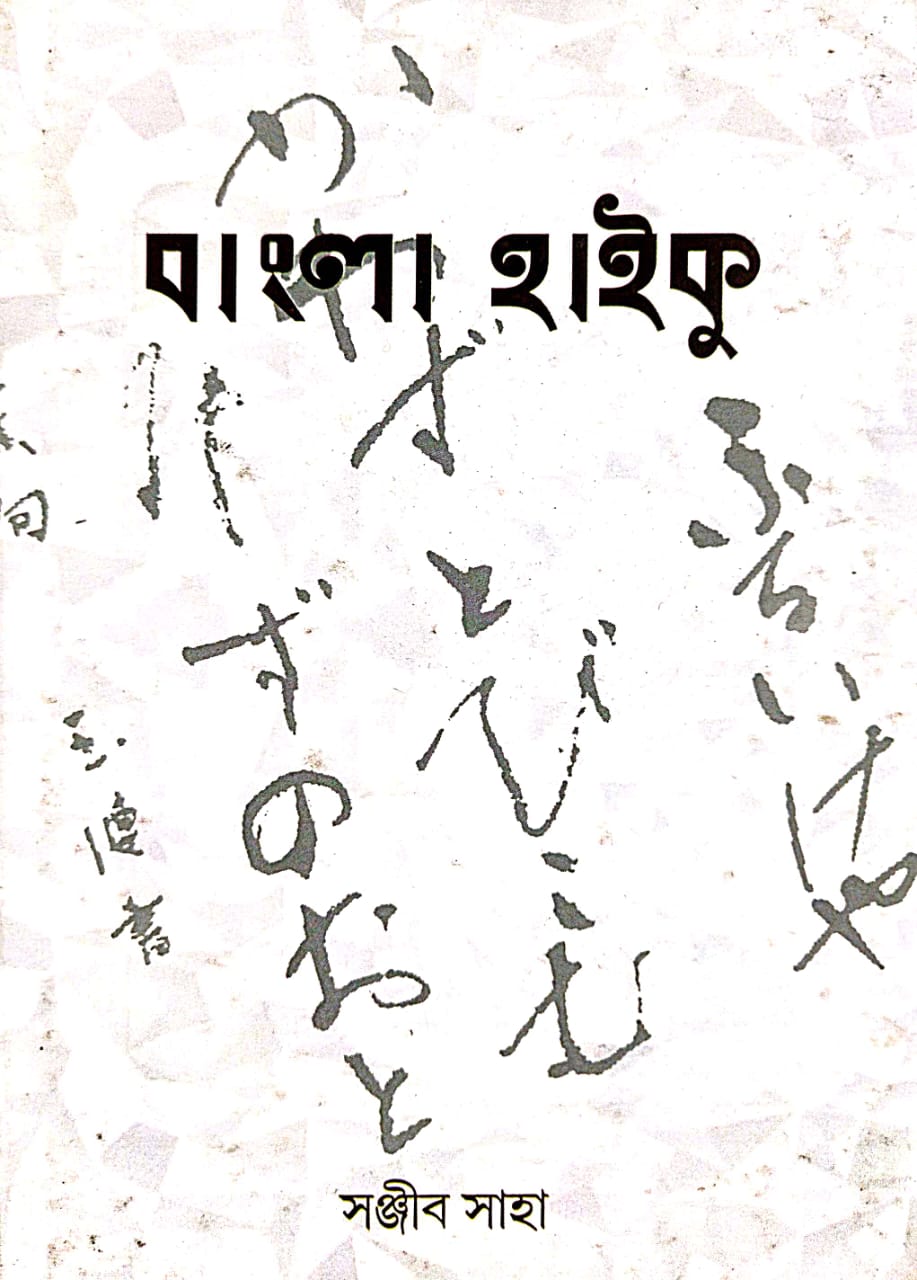 বাংলা হাইকু
ふるいけや
かわずとびこむ
みずのおと
সঞ্জীব সাহা